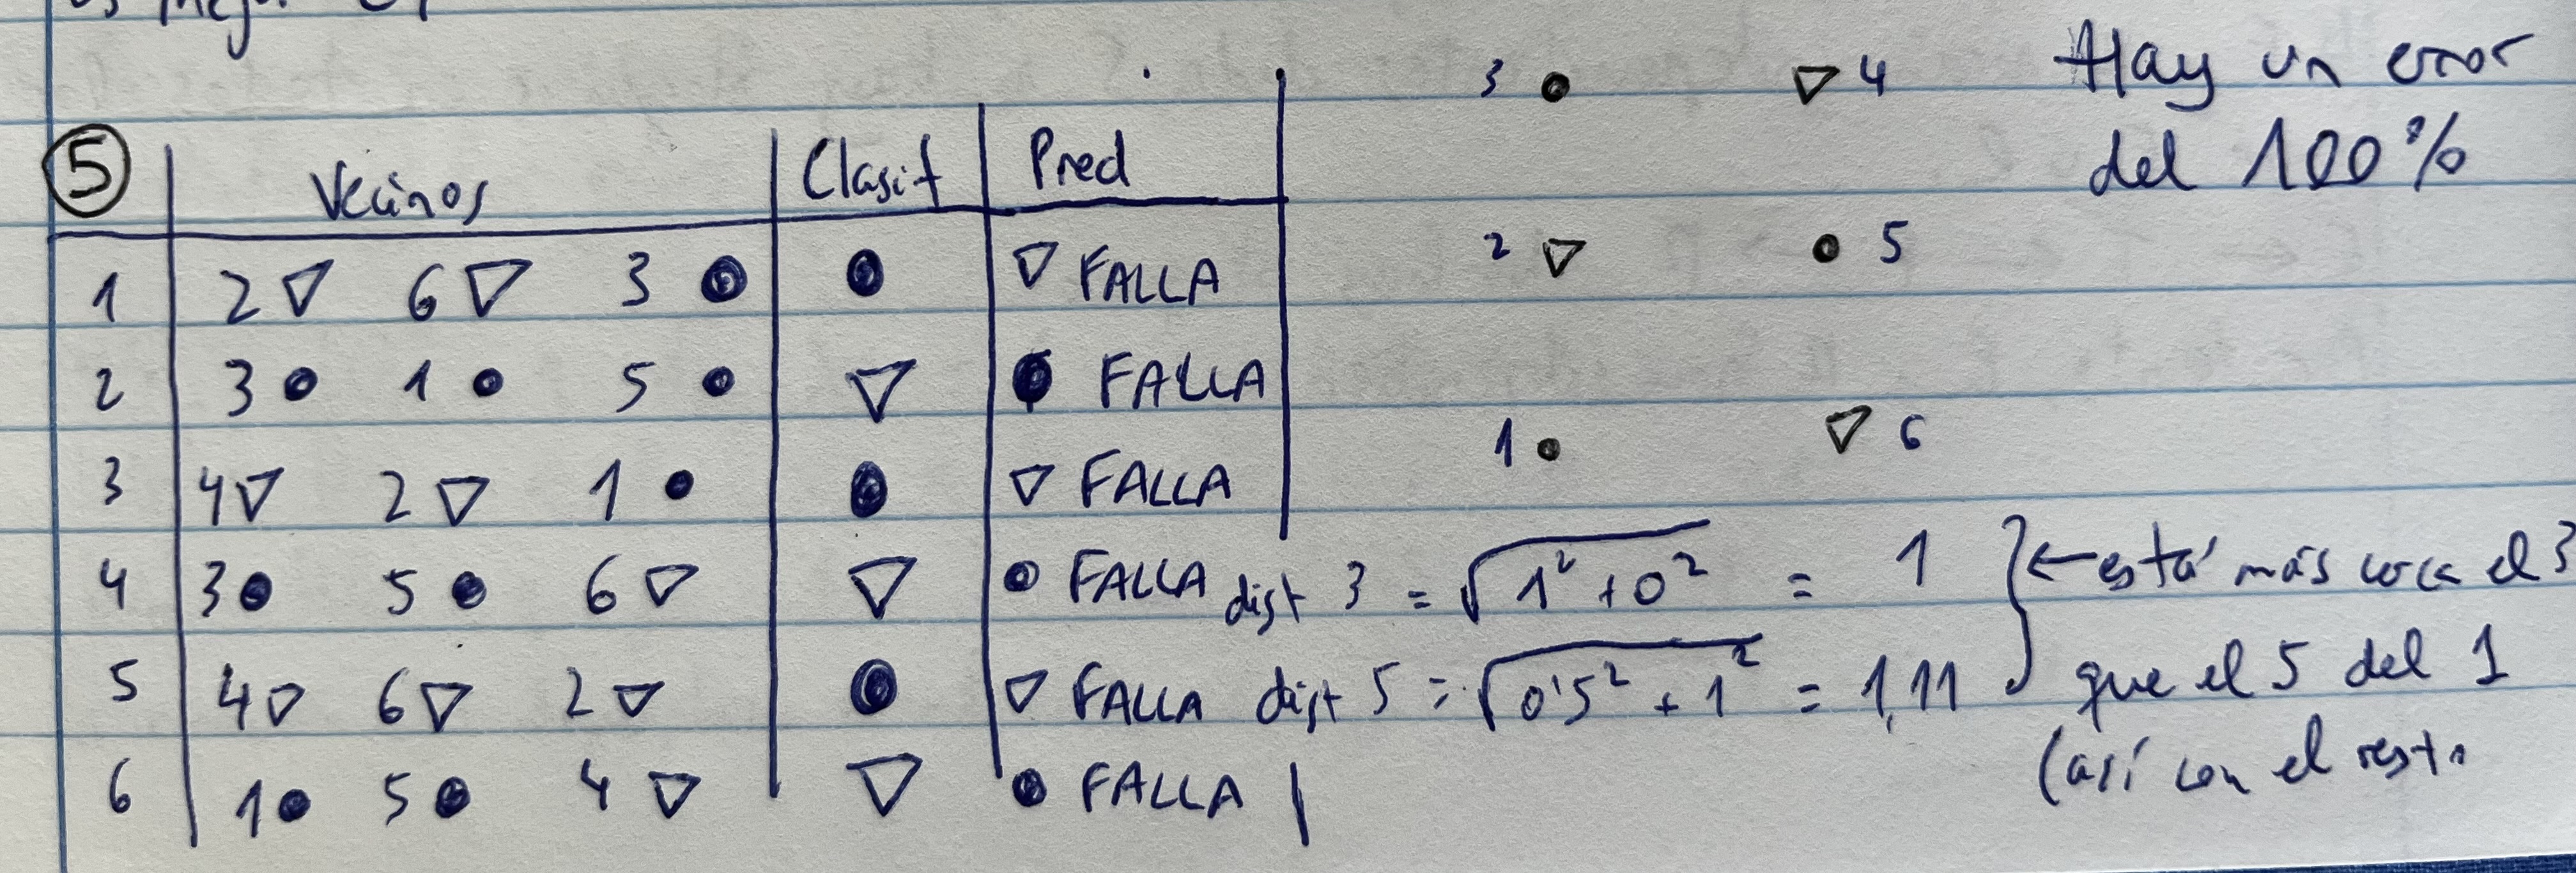 ⑤ Vecinos Clasif Pred
1 2 ▽ 6 ▽ 3 ● ● ▽ FALLA
2 3 ● 1 ● 5 ● ▽ ● FALLA
3 4 ▽ 2 ▽ 1 ● ● ▽ FALLA
4 3 ● 5 ● 6 ▽ ▽ ● FALLA
5 4 ▽ 6 ▽ 2 ▽ ● ▽ FALLA
6 1 ● 5 ● 4 ▽ ▽ ● FALLA
3 ● ▽ 4
2 ▽ ● 5
1 ● ▽ 6
Hay un error
del 100%
dist 3 = √1² + 0² = 1
dist 5 = √0'5² + 1² = 1,11
← está más cerca el 3
que el 5 del 1
(así con el resto